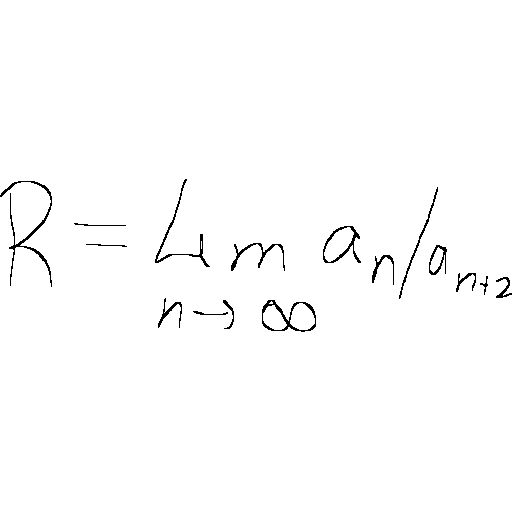 R = Lim a_n/a_{n+2}
n→∞